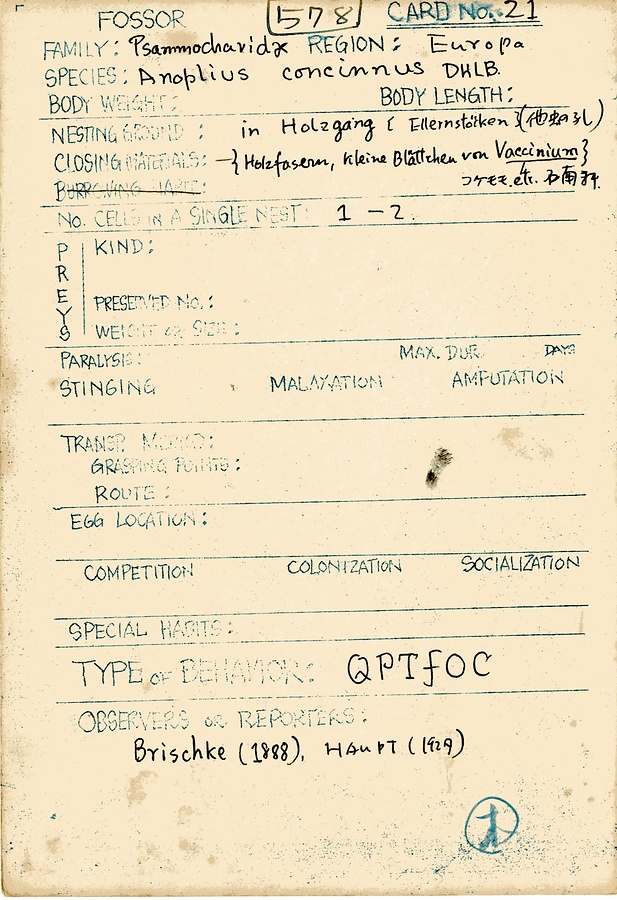 FOSSOR 578 CARD No. 21
FAMILY: Psammocharidæ REGION: Europa
SPECIES: Anoplius concinnus DHLB.
BODY WEIGHT: BODY LENGTH:
NESTING GROUND : in Holzgang { Ellernstöcken } (他虫の孔)
CLOSING MATERIALS: —{ Holzfasern, kleine Blättchen von Vaccinium }
BURROWING HABIT: コケモモ. etc. 石南科.
No. CELLS IN A SINGLE NEST: 1 – 2.
PREYS
KIND:
PRESERVED No.:
WEIGHT or SIZE:
PARALYSIS: MAX. DUR. DAYS
STINGING MALAXATION AMPUTATION
TRANSP. METHOD:
GRASPING POINTS:
ROUTE :
EGG LOCATION:
COMPETITION COLONIZATION SOCIALIZATION
SPECIAL HABITS:
TYPE OF BEHAVIOR: QPTfOC
OBSERVERS or REPORTERS:
Brischke (1888), HAUPT (1929)